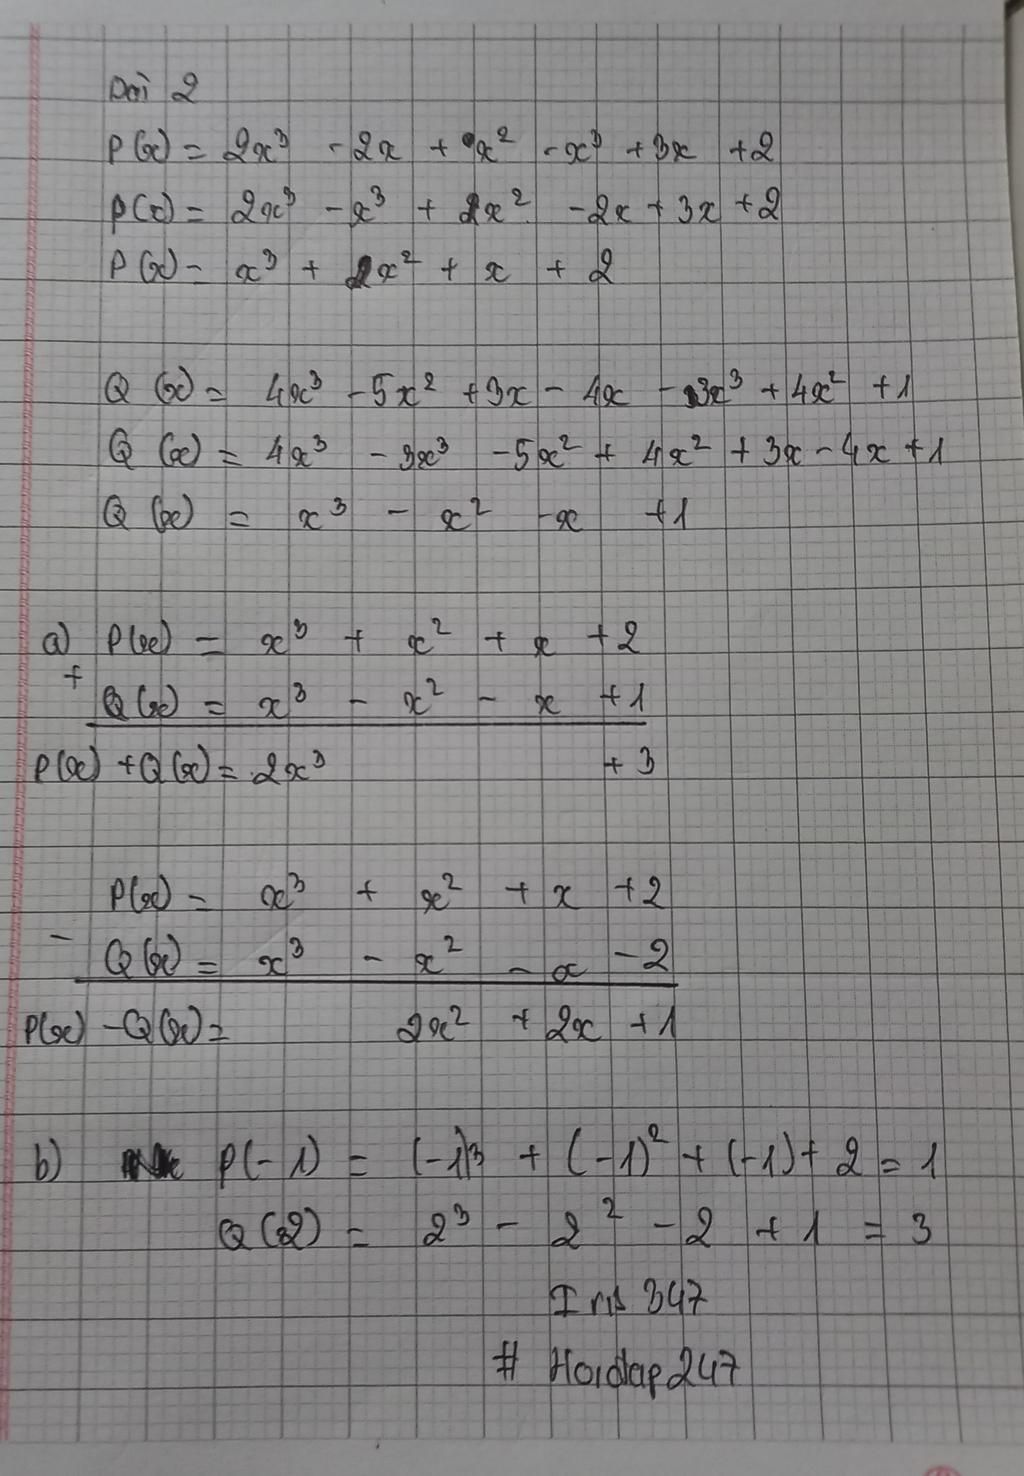 Bài 2
P(x) = 2x³ - 2x + x² - x³ + 3x + 2
P(x) = 2x³ - x³ + x² - 2x + 3x + 2
P(x) = x³ + x² + x + 2
Q(x) = 4x³ - 5x² + 3x - 4x - 3x³ + 4x² + 1
Q(x) = 4x³ - 3x³ - 5x² + 4x² + 3x - 4x + 1
Q(x) = x³ - x² - x + 1
a) P(x) = x³ + x² + x + 2
+
Q(x) = x³ - x² - x + 1
P(x) + Q(x) = 2x³ + 3
P(x) = x³ + x² + x + 2
-
Q(x) = x³ - x² - x - 2
P(x) - Q(x) = 2x² + 2x + 1
b) P(-1) = (-1)³ + (-1)² + (-1) + 2 = 1
Q(2) = 2³ - 2² - 2 + 1 = 3
Iris 347
# Hoidap247